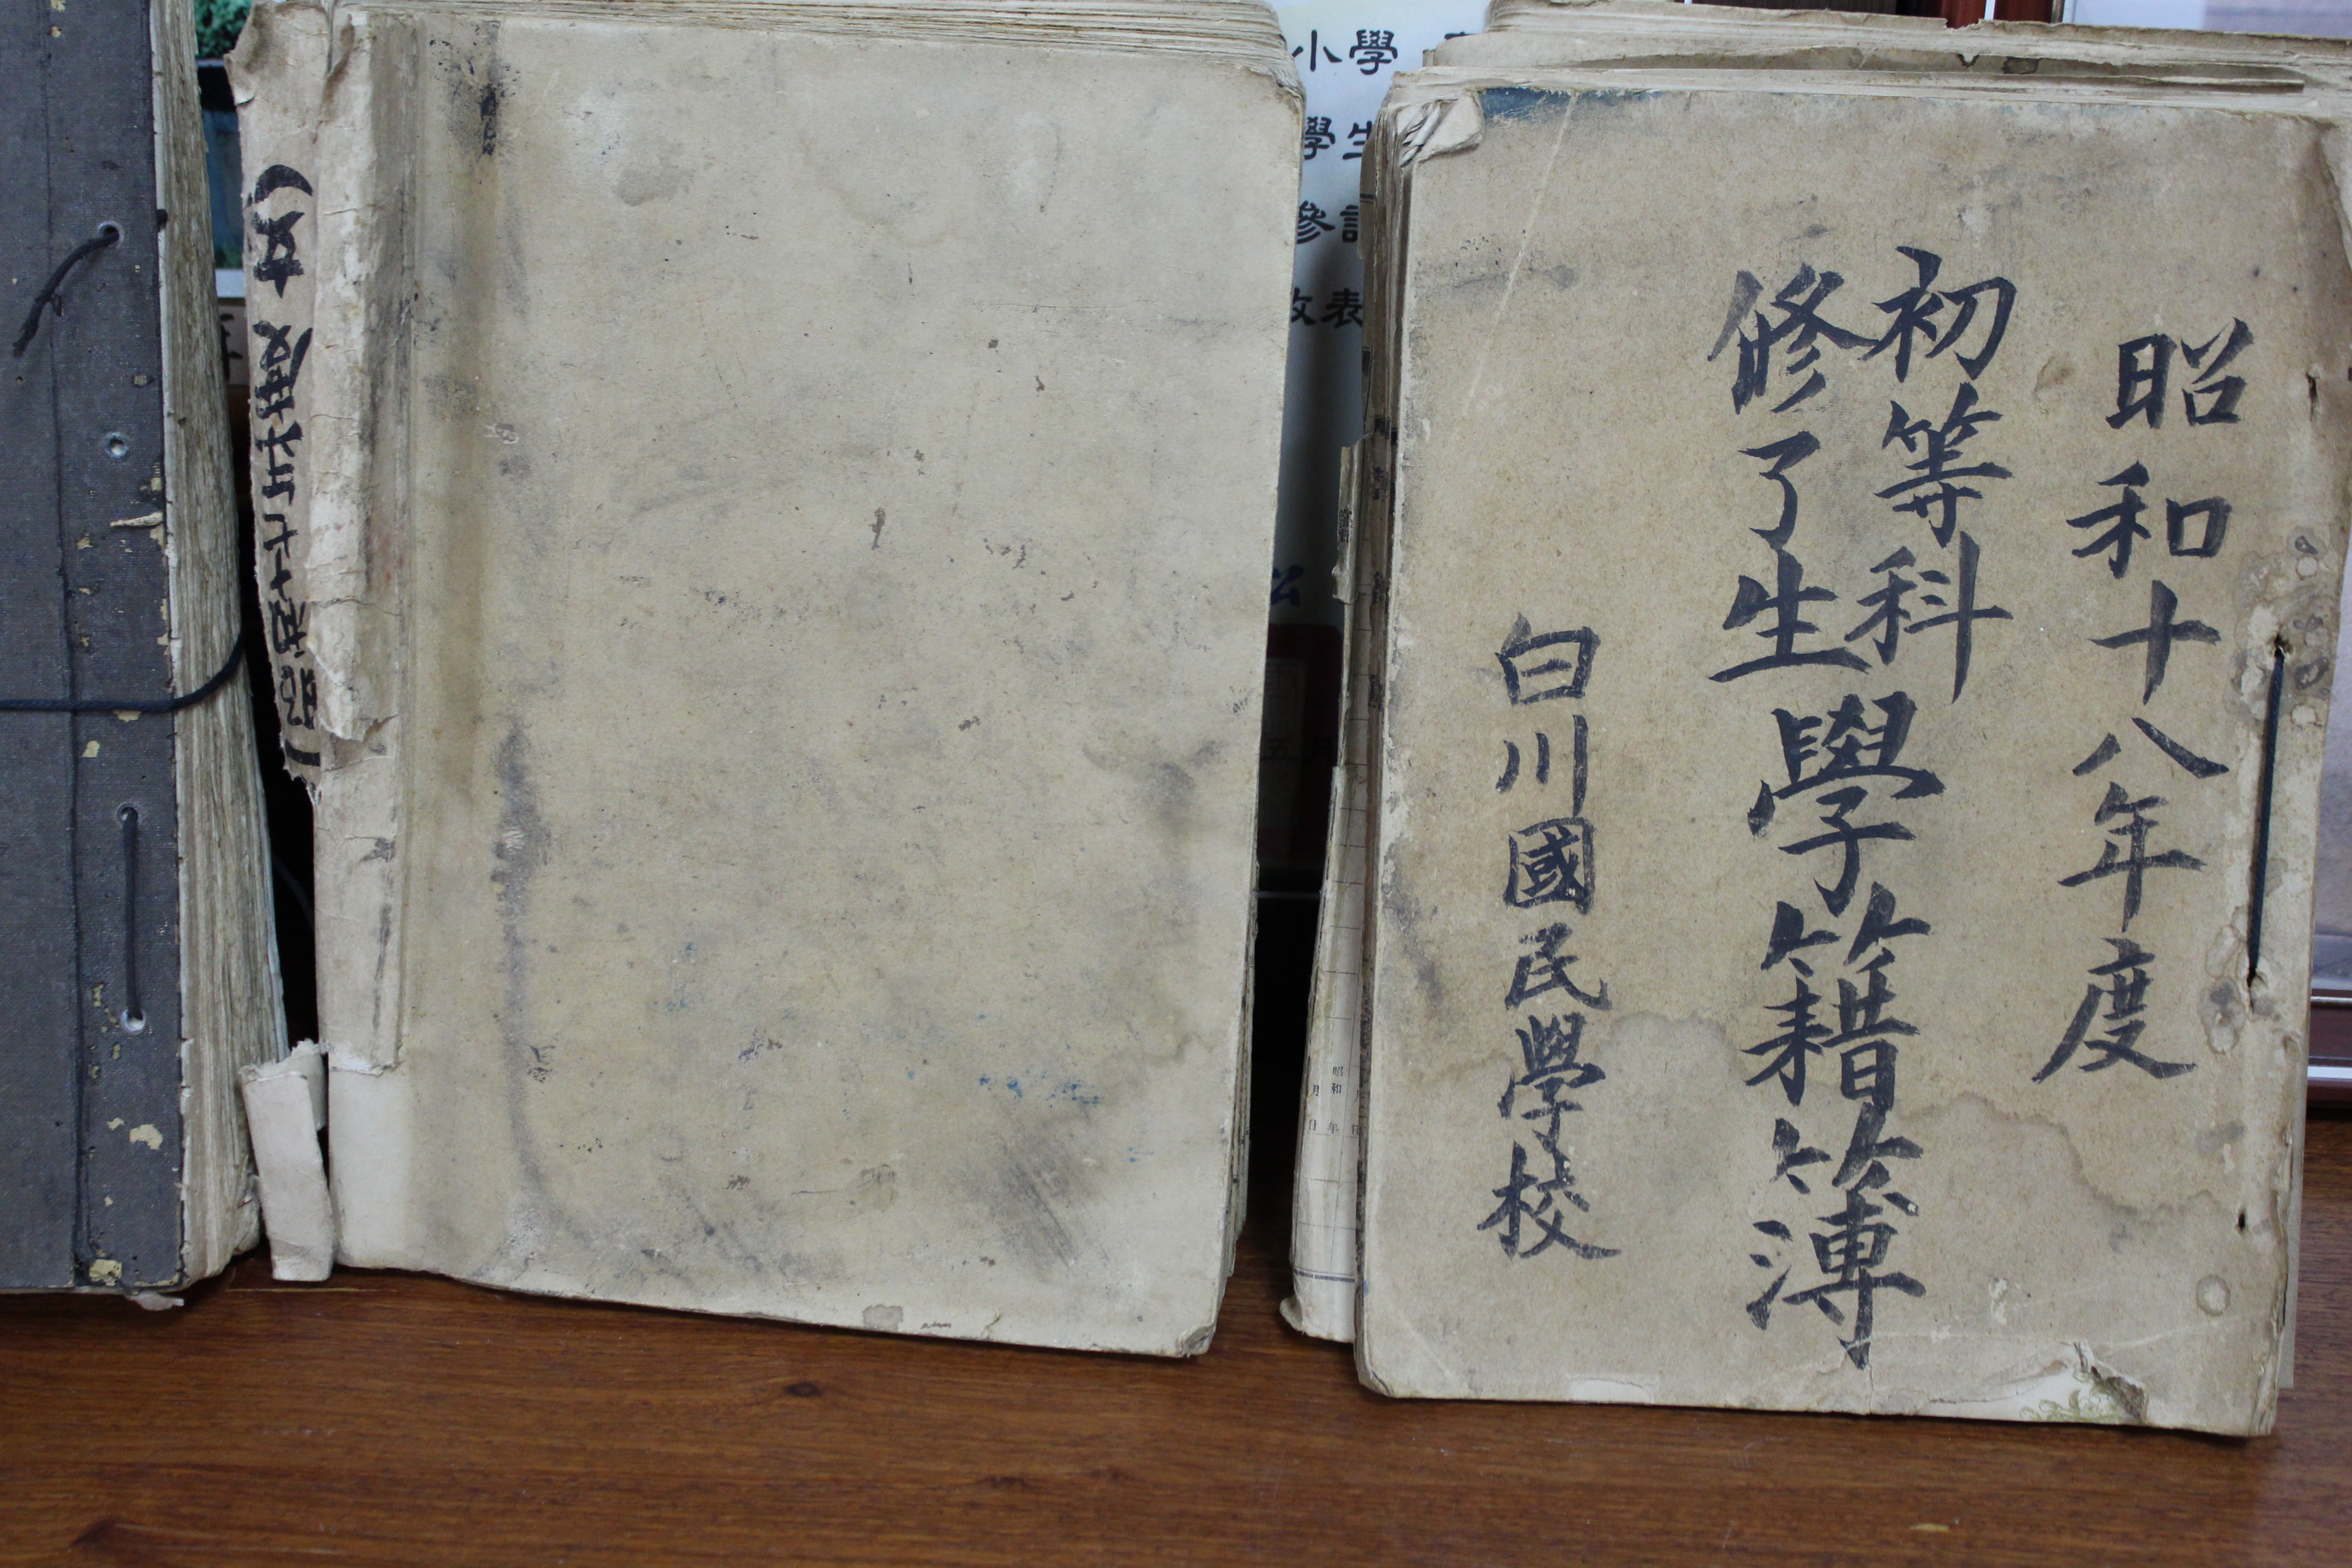 昭和十八年度
初等科
修了生
學籍簿
白川國民學校
小學
學生
參
表
昭和 年
月 日